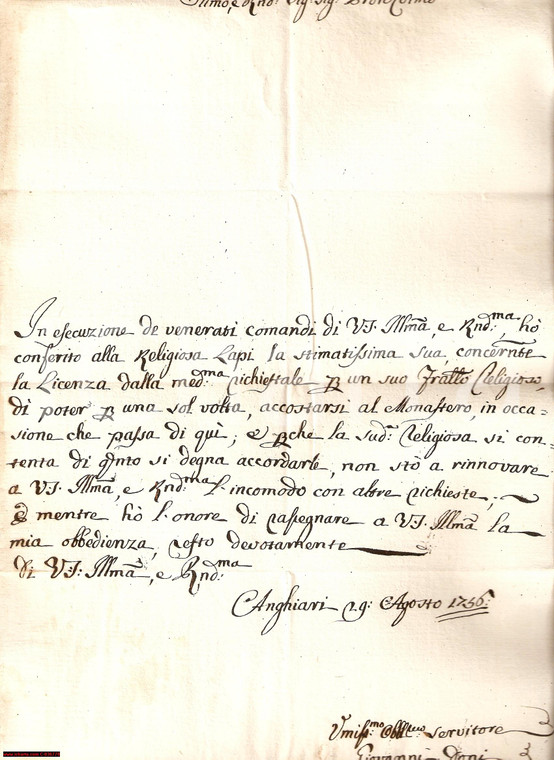 Illmo, e Rndo. Sig: Sig: Pron Colmo
In esecuzione de venerati comandi di VS. Illmā e Rnd:ma, hò
conferito alla Religiosa Lapi la stimatissima sua, concern̄te
la Licenza dalla med:ma richiestale ꝑ un suo Fratt̄o Religioso,
di poter ꝑ una sol volta, accostarsi al Monastero, in occa=
sione che passa di quì; e ꝑche la sud:ā Religiosa si con=
tenta di q̄nto si degna accordarle, non stò a rinnovare
a VS. Illmā, e Rnd:ma l'incomodo con altre richieste;
e mentre hò l'onore di rassegnare a VS. Illmā la
mia obbedienza, resto devotamente
di VS: Illmā, e Rnd:ma
Anghiari 29: Agosto 1756:
Umiss:mo Obbl:mo servitore
Giovanni Doni